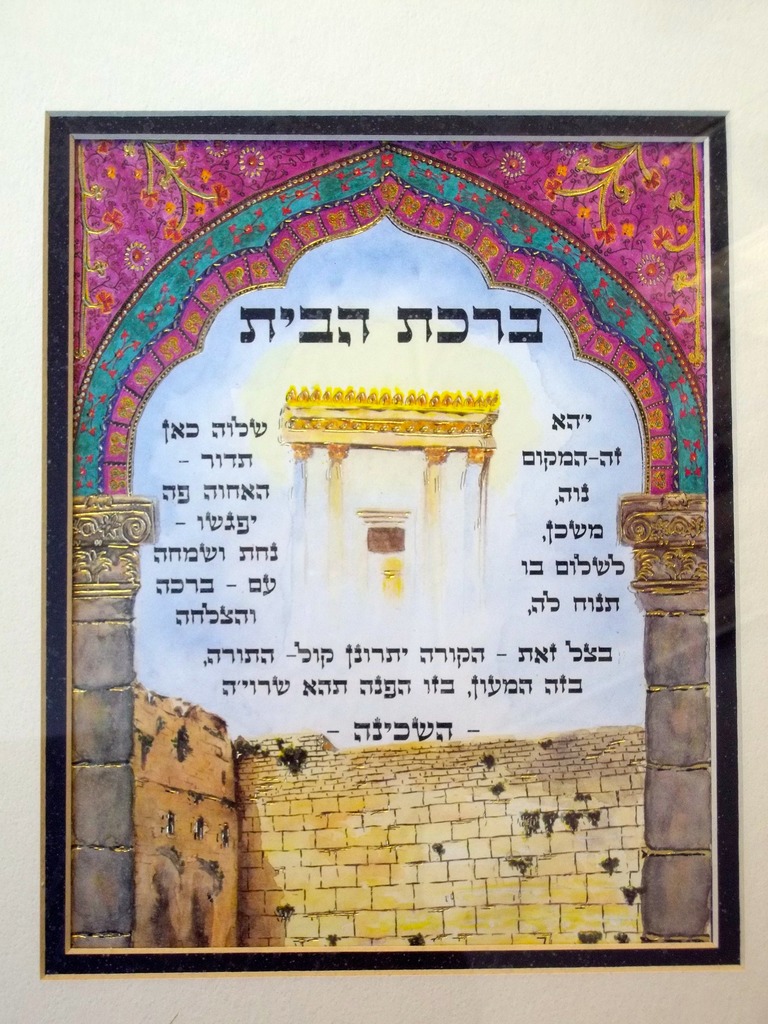 ברכת הבית
יהא
זה-המקום
נוה,
משכן,
לשלום בו
תנוח לה,
שלוה כאן
תדור -
האחוה פה
יפגשו -
נחת ושמחה
עם - ברכה
והצלחה
בצל זאת - הקורה יתרונן קול- התורה,
בזה המעון, בזו הפנה תהא שרוי'ה
- השכינה -